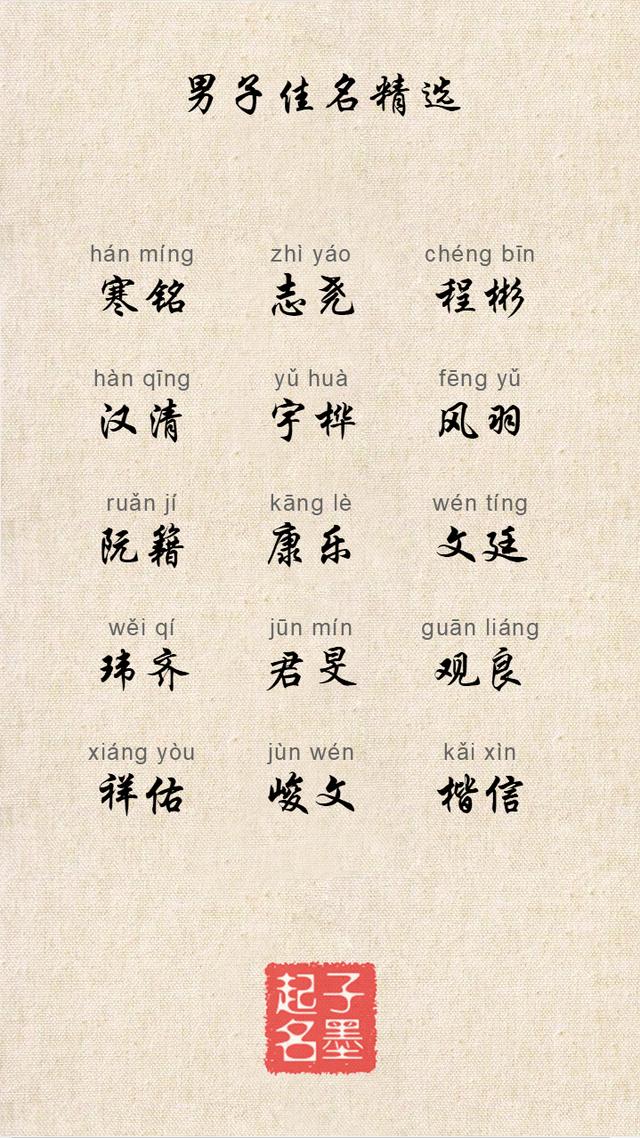 男子佳名精选
hán míng zhì yáo chéng bīn
寒铭 志尧 程彬
hàn qīng yǔ huà fēng yǔ
汉清 宇桦 风羽
ruǎn jí kāng lè wén tíng
阮籍 康乐 文廷
wěi qí jūn mín guān liáng
玮齐 君旻 观良
xiáng yòu jùn wén kǎi xìn
祥佑 峻文 楷信
子墨
起名